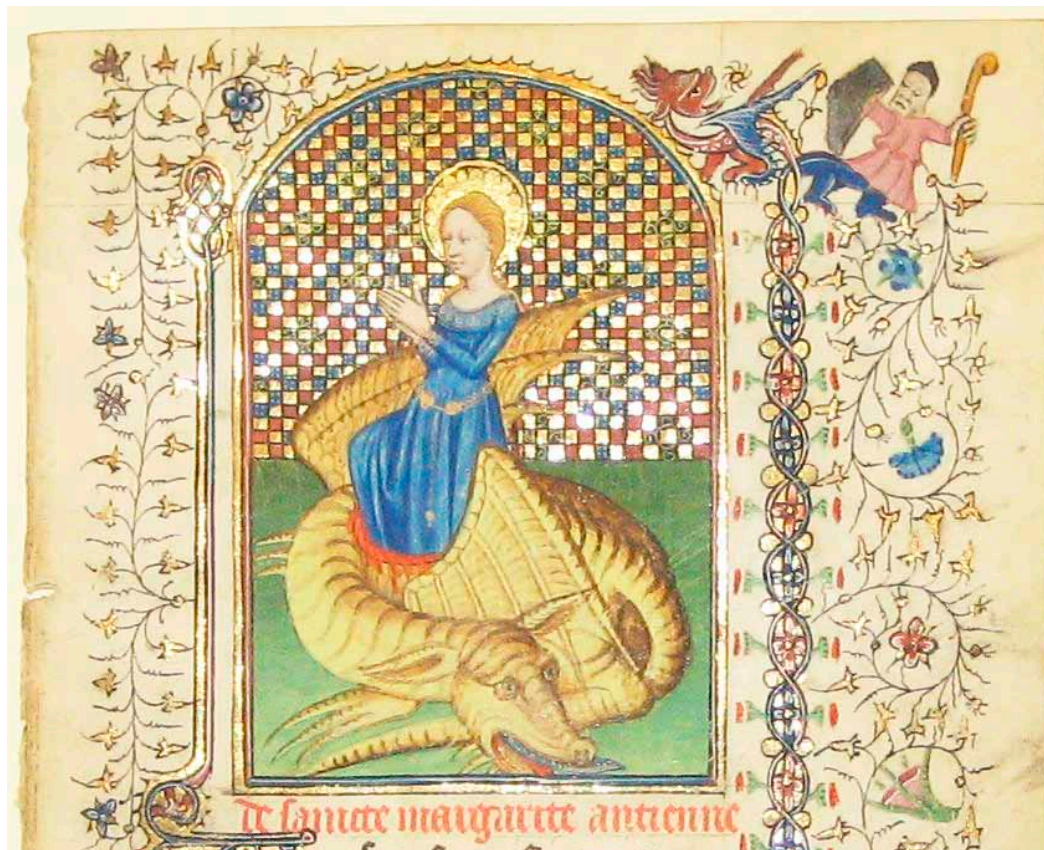 De saincte margarite antienne